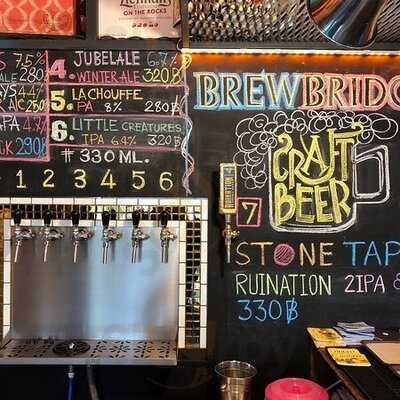 ON THE ROCKS
7.5%
ALE 280
4.4%
ALC 250
4.
290฿
4. JUBELALE 6.7%
WINTER ALE 320฿
5. LA CHOUFFE
IPA 8% 280฿
6. LITTLE CREATURES
IPA 6.4% 320฿
# 330 ML.
1 2 3 4 5 6
BREWBRIDG
CRAFT
BEER
7
STONE TAP
RUINATION 2IPA 8
330฿